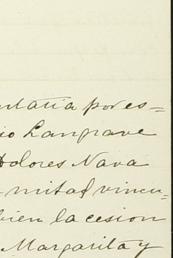 ntatia por es=
io Langrave
Dolores Nava
mitad vincu-
bien la cesion
Margarita y